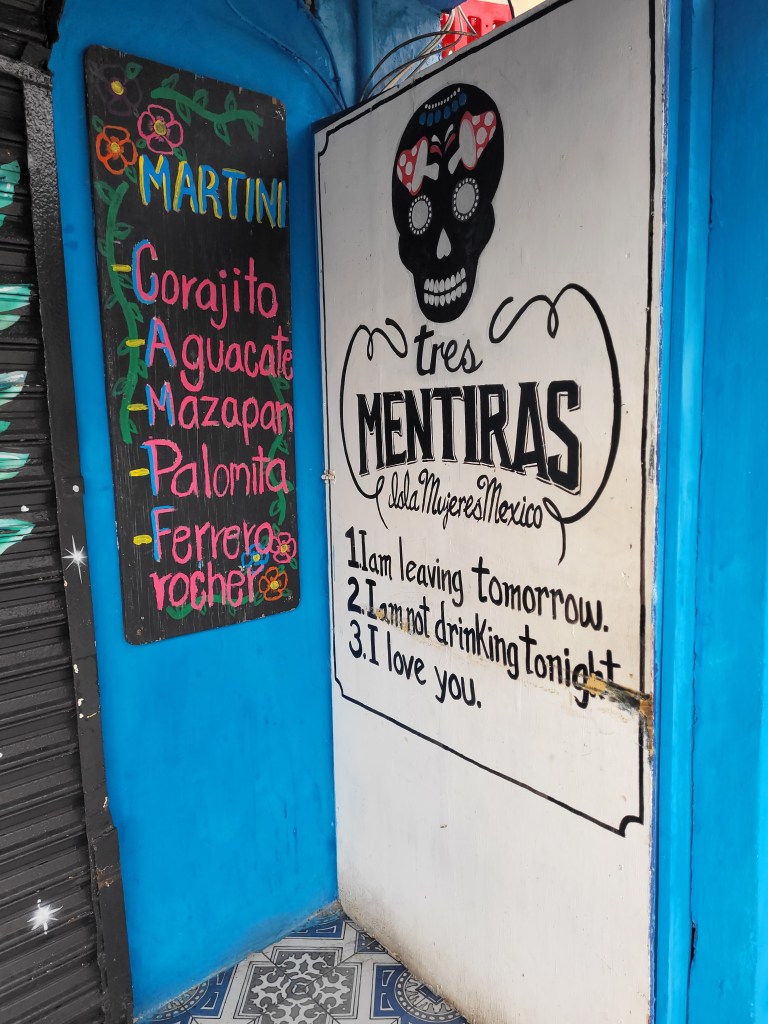 MARTINI
- Corajito
- Aguacate
- Mazapan
- Palomita
- Ferrero
rocher
tres
MENTIRAS
Isla Mujeres Mexico
1. I am leaving tomorrow.
2. I am not drinking tonight
3. I love you.